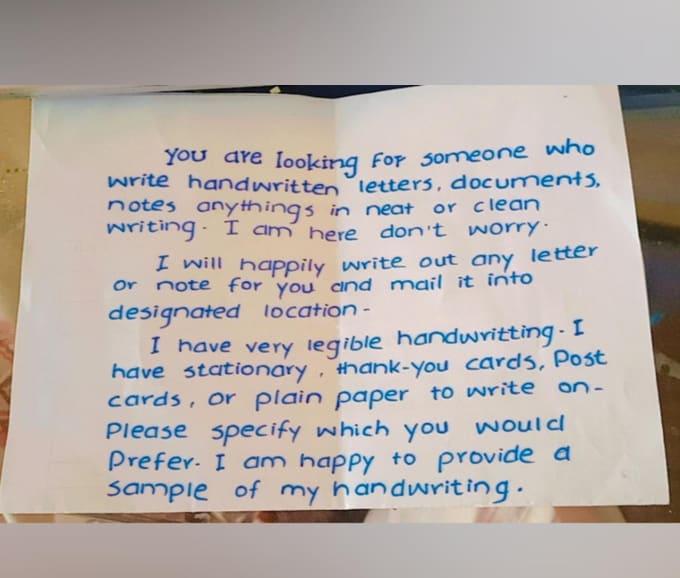 You are looking for someone who
write handwritten letters, documents,
notes anythings in neat or clean
writing. I am here don't worry.
I will happily write out any letter
or note for you and mail it into
designated location -
I have very legible handwritting. I
have stationary, thank-you cards, Post
cards, or plain paper to write on-
Please specify which you would
Prefer. I am happy to provide a
sample of my handwriting.